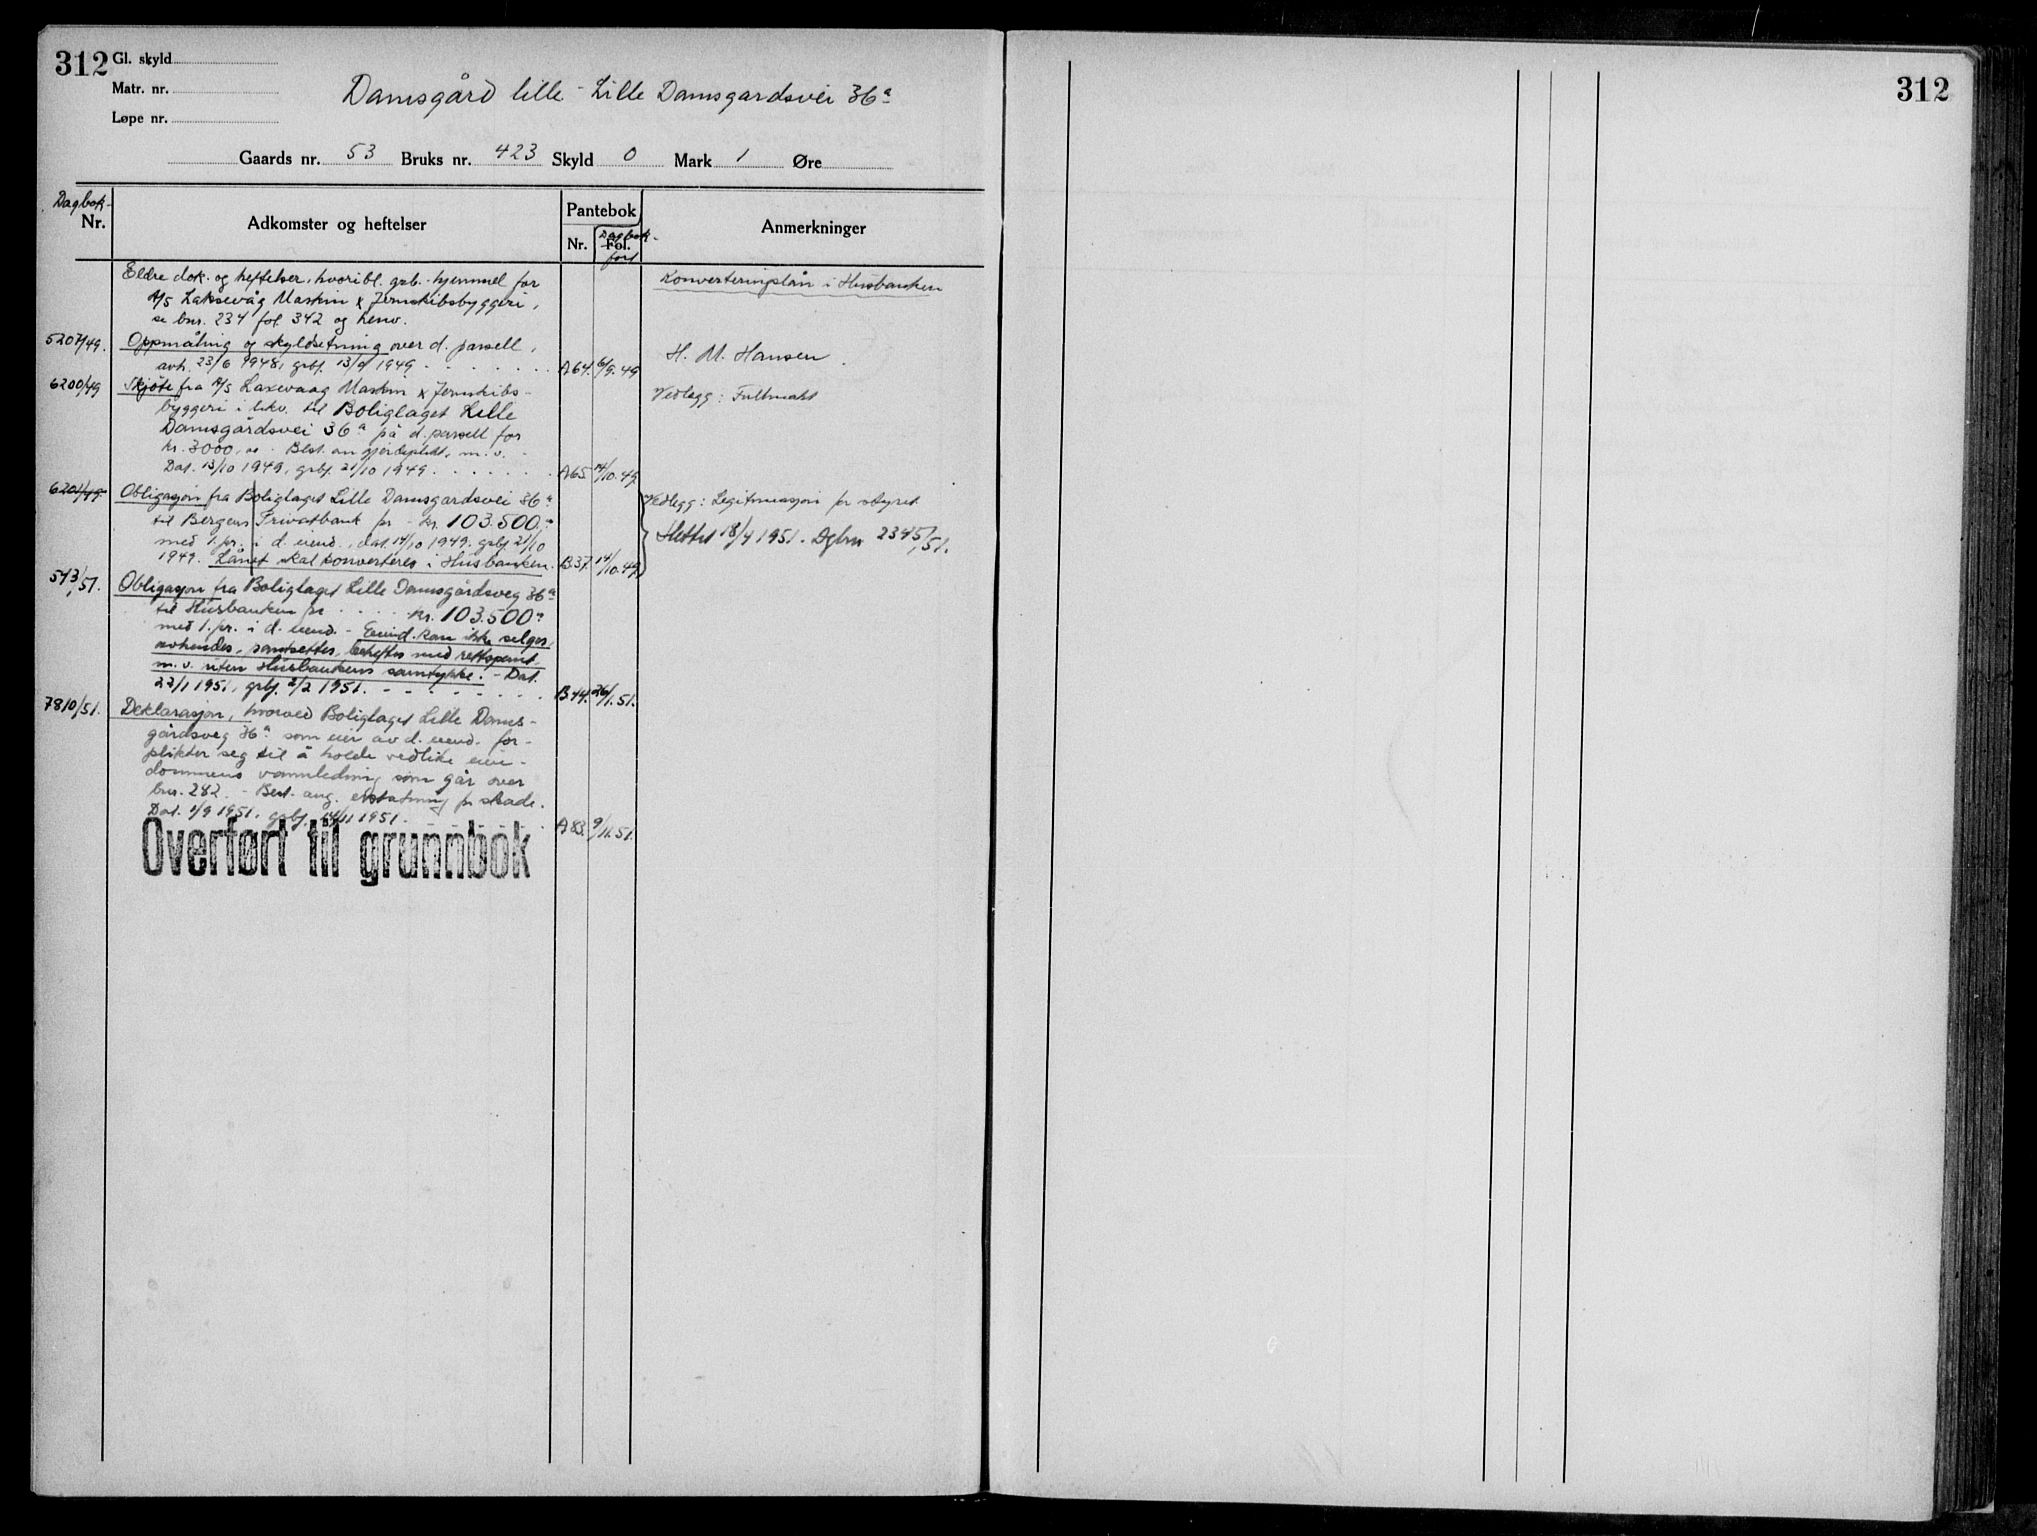 312 Gl. skyld
Matr. nr.
Løpe nr.
Damsgård lille - Lille Damsgardsvei 36a
Gaards nr. 53 Bruks nr. 423 Skyld 0 Mark 1 Øre
312
Dagbok-
Nr.
Adkomster og heftelser
Pantebok
Nr. Fol.
Dagbok-
ført
Anmerkninger
Eldre dok. og heftelser, hvoribl. grb. hjemmel for
A/S Laksevåg Maskin & Jernskibsbyggeri,
se bnr. 234 fol 342 og henv.
Konverteringslån i Husbanken
5207/49. Oppmåling og skyldsetning over d. parsell,
avh. 23/6 1948, grbf. 13/9 1949 A64. 6/9.49
H. M. Hansen
6200/49 Skjøte fra A/S Laxevaag Maskin & Jernskibs-
byggeri i likv. til Boliglaget Lille
Damsgårdsvei 36a på d. parsell for
kr. 3000,00 - Best. om gjerdeplikt, m. v. -
Dat. 13/10 1949, grbf. 21/10 1949 A65 14/10.49
Vedlegg: Fullmakt
6201/49. Obligasjon fra Boliglaget Lille Damsgardsvei 36a
til Bergens Privatbank for - kr. 103.500.-
med 1. pr. i d. eiend., dat. 14/10 1949. grbf 21/10
1949. Lånet skal konverteres i Husbanken. B37. 14/10.49
Vedlegg: Legitimasjon for styret
Slettet 18/4 1951. Dgbnr 2345/51.
573/51. Obligasjon fra Boliglaget Lille Damsgårdsveg 36a
til Husbanken for kr. 103.500.-
med 1. pr. i d. eiend. - Eiend. kan ikke selges,
avhendes, pantsettes, beheftes med rettspant
m. v. uten Husbankens samtykke. - Dat.
22/1 1951, grbf. 2/2 1951. B44. 26/1.51.
7810/51. Deklarasjon, hvorved Boliglaget Lille Dams-
gårdsveg 36a som eier av d. eiend. for-
plikter seg til å holde vedlike eien-
dommens vannledning som går over
bnr. 282. - Best. ang. erstatning for skade.
Dat. 1/9 1951, grbf. 14/11 1951. A83. 9/11.51.
Overført til grunnbok